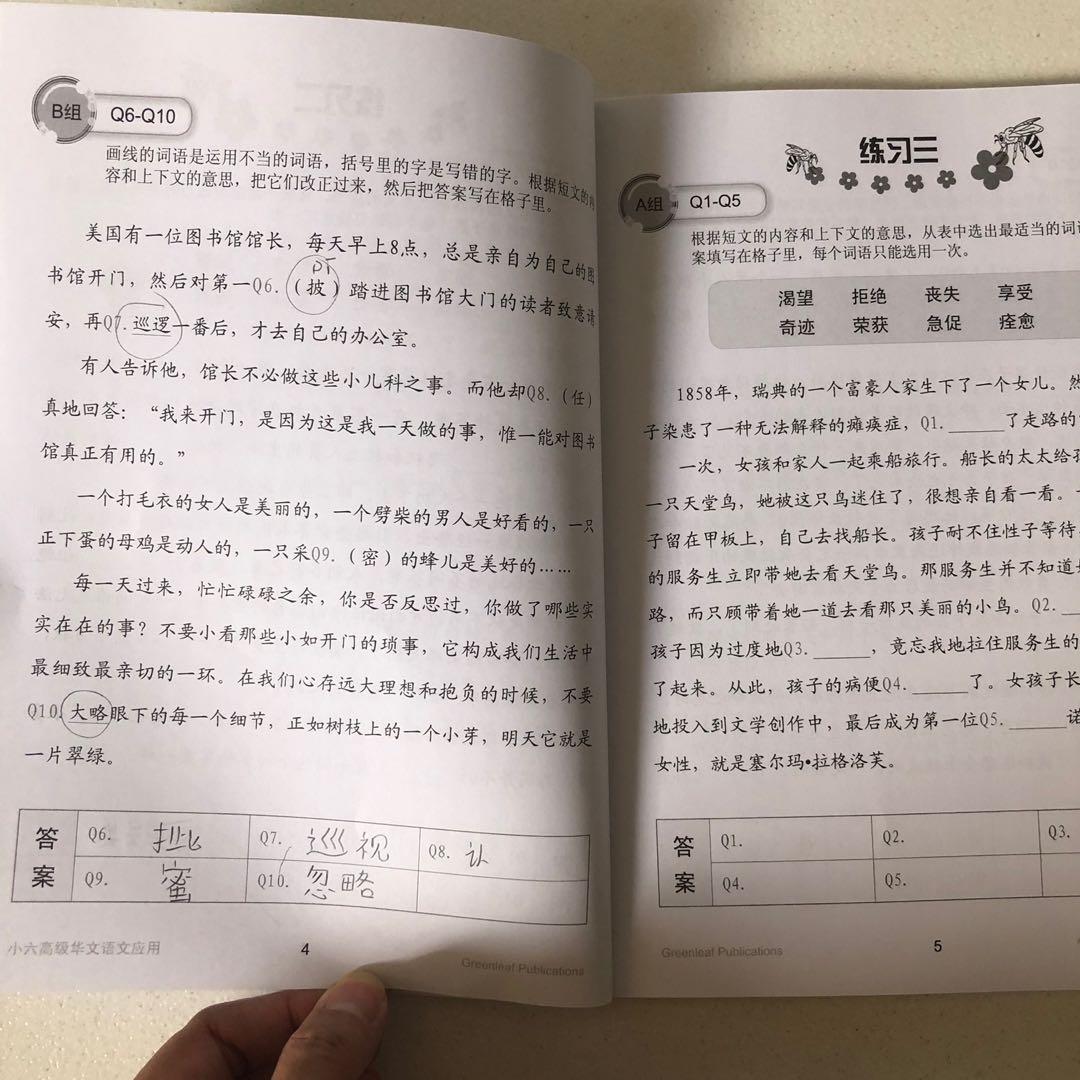 B组 Q6-Q10
画线的词语是运用不当的词语，括号里的字是写错的字。根据短文的内
容和上下文的意思，把它们改正过来，然后把答案写在格子里。
美国有一位图书馆馆长，每天早上8点，总是亲自为自己的图
书馆开门，然后对第一Q6.（披）踏进图书馆大门的读者致意请
安，再Q7.巡逻一番后，才去自己的办公室。
有人告诉他，馆长不必做这些小儿科之事。而他却Q8.（任）
真地回答：“我来开门，是因为这是我一天做的事，惟一能对图书
馆真正有用的。”
一个打毛衣的女人是美丽的，一个劈柴的男人是好看的，一只
正下蛋的母鸡是动人的，一只采Q9.（密）的蜂儿是美好的……
每一天过来，忙忙碌碌之余，你是否反思过，你做了哪些实
实在在的事？不要小看那些小如开门的琐事，它构成我们生活中
最细致最亲切的一环。在我们心存远大理想和抱负的时候，不要
Q10.大略眼下的每一个细节，正如树枝上的一个小芽，明天它就是
一片翠绿。
答案
Q6. Q7. 巡视 Q8. 认
Q9. 蜜 Q10. 忽略
小六高级华文语文应用
4
Greenleaf Publications
练习三
A组 Q1-Q5
根据短文的内容和上下文的意思，从表中选出最适当的词语
案填写在格子里，每个词语只能选用一次。
渴望 拒绝 丧失 享受
奇迹 荣获 急促 痊愈
1858年，瑞典的一个富豪人家生下了一个女儿。然
子染患了一种无法解释的瘫痪症，Q1.______了走路的
一次，女孩和家人一起乘船旅行。船长的太太给孩
一只天堂鸟，她被这只鸟迷住了，很想亲自看一看。
子留在甲板上，自己去找船长。孩子耐不住性子等待
的服务生立即带她去看天堂鸟。那服务生并不知道
路，而只顾带着她一道去看那只美丽的小鸟。Q2.____
孩子因为过度地Q3.______，竟忘我地拉住服务生的
了起来。从此，孩子的病便Q4.______了。女孩子长
地投入到文学创作中，最后成为第一位Q5.______诺
女性，就是塞尔玛•拉格洛芙。
答案
Q1. Q2. Q3.
Q4. Q5.
Greenleaf Publications
5